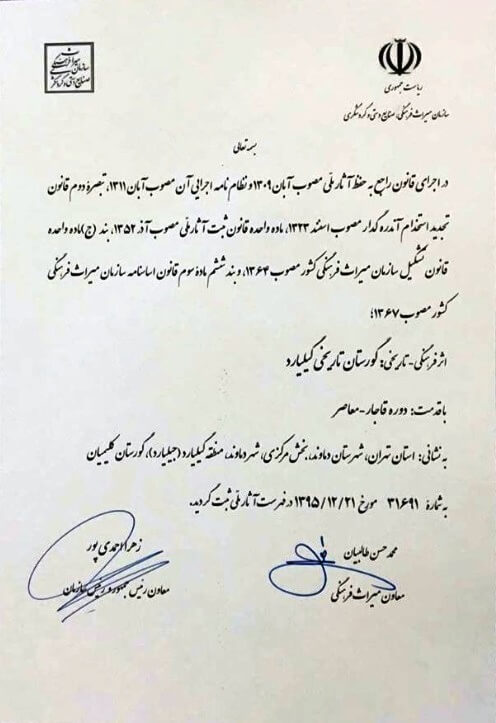 ریاست جمهوری
سازمان میراث فرهنگی، صنایع دستی و گردشگری
بسمه تعالی
در اجرای قانون راجع به حفظ آثار ملی مصوب آبان ۱۳۰۹ و نظام نامه اجرایی آن مصوب آبان ۱۳۱۱، تبصرهٔ دوم قانون
تجدید استخدام آندره گدار مصوب اسفند ۱۳۲۳، ماده واحده قانون ثبت آثار ملی مصوب آذر ۱۳۵۲، بند (ج) ماده واحده
قانون تشکیل سازمان میراث فرهنگی کشور مصوب ۱۳۶۴، و بند ششم مادهٔ سوم قانون اساسنامه سازمان میراث فرهنگی
کشور مصوب ۱۳۶۷؛
اثر فرهنگی - تاریخی: گورستان تاریخی گیلیارد
با قدمت: دوره قاجار - معاصر
به نشانی: استان تهران، شهرستان دماوند، بخش مرکزی، شهر دماوند، منطقه گیلیارد (جیلیارد)، گورستان کلیمیان
به شمارهٔ ۳۱۶۹۱ مورخ ۱۳۹۵/۱۲/۲۱ در فهرست آثار ملی ثبت گردید.
محمد حسن طالبیان
معاون میراث فرهنگی
زهرا احمدی پور
معاون رئیس جمهور و رئیس سازمان